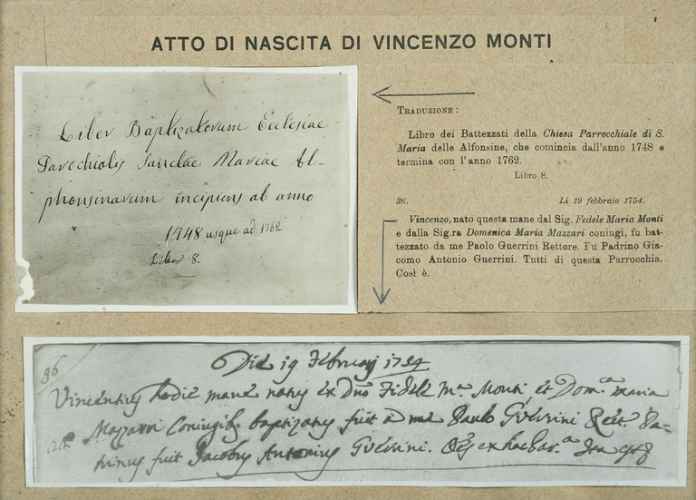 ATTO DI NASCITA DI VINCENZO MONTI
Liber Baptizatorum Ecclesiae
Parochialis Sanctae Mariae Al-
phonsinarum incipiens ab anno
1748 usque ad 1762
Liber 8.
TRADUZIONE:
Libro dei Battezzati della Chiesa Parrocchiale di S.
Maria delle Alfonsine, che comincia dall'anno 1748 e
termina con l'anno 1762.
Libro 8.
36. Li 19 febbraio 1754.
Vincenzo, nato questa mane dal Sig. Fedele Maria Monti
e dalla Sig.ra Domenica Maria Mazzari coniugi, fu bat-
tezzato da me Paolo Guerrini Rettore. Fu Padrino Gia-
como Antonio Guerrini. Tutti di questa Parrocchia.
Così è.
36
Die 19 Februarij 1754
Vincentius hodie mane natus ex Dno Fidele Ma. Monti et Dom.ca maria
Mazzarri Coniugib. baptizatus fuit a me Paulo Guerrini Rect. Pa-
trinus fuit Jacobus Antonius Guerrini.